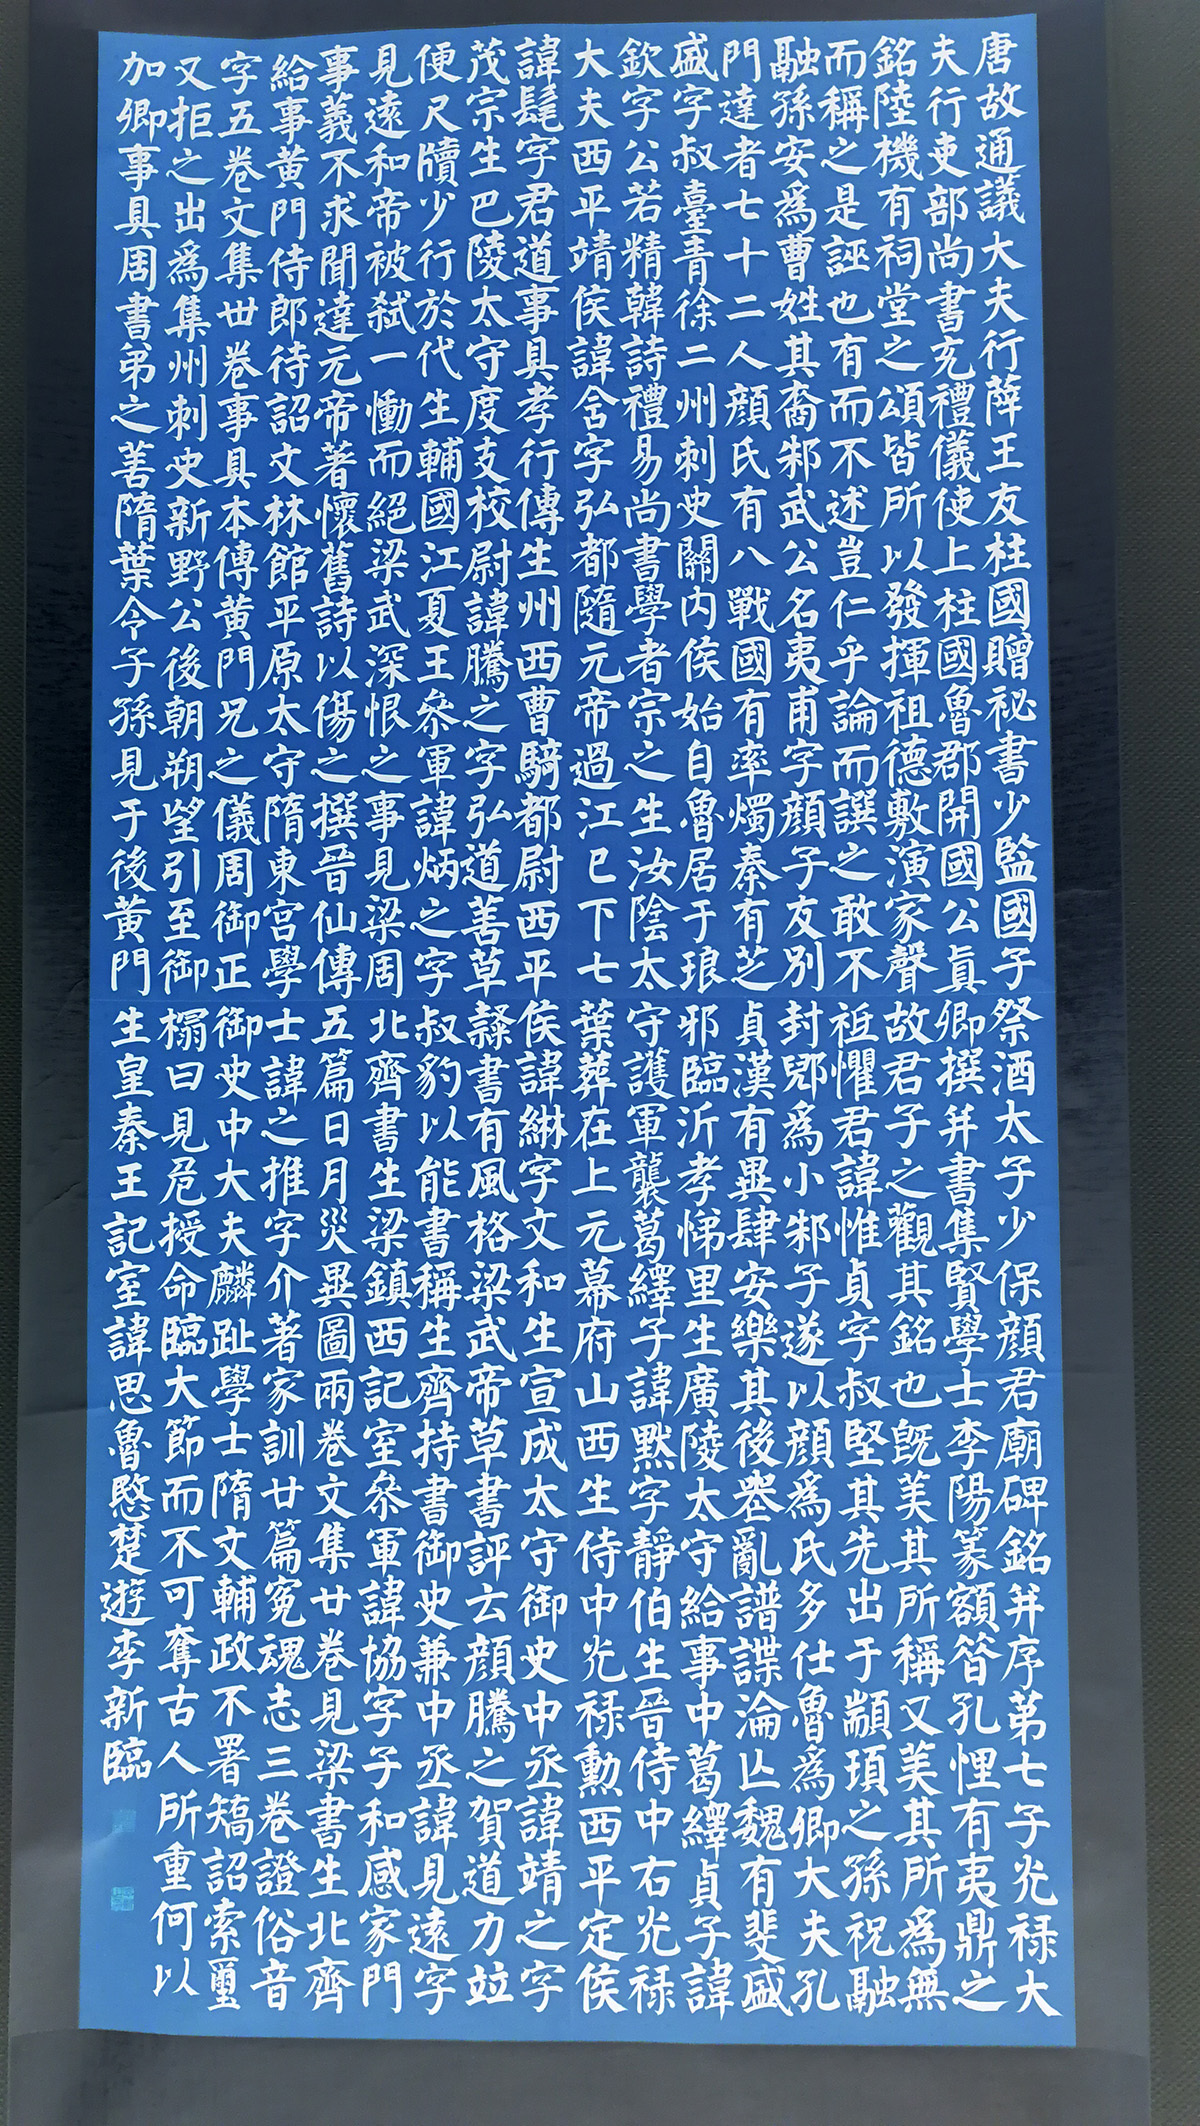 唐故通議大夫行薛王友柱國贈祕書少監國子祭酒太子少保顔君廟碑銘并序第七子光禄大
夫行吏部尚書充禮儀使上柱國魯郡開國公真卿撰并書集賢學士李陽篆額昝孔悝有夷鼎之
銘陸機有祠堂之頌皆所以發揮祖德敷演家聲故君子之觀其銘也旣美其所稱又美其所為無
而稱之是誣也有而不述豈仁乎論而譔之敢不祗懼君諱惟貞字叔堅其先出于顓頊之孫祝融
融孫安為曹姓其裔邾武公名夷甫字顔子友別封郳為小邾子遂以顔為氏多仕魯為卿大夫孔
門達者七十二人顔氏有八戰國有率燭秦有芝貞漢有異肆安樂其後喪亂譜諜淪亡魏有斐盛
盛字叔臺青徐二州刺史關内侯始自魯居于琅邪臨沂孝悌里生廣陵太守給事中葛繹貞子諱
欽字公若精韓詩禮易尚書學者宗之生汝陰太守護軍襲葛繹子諱黙字靜伯生晉侍中右光禄
大夫西平靖侯諱含字弘都隨元帝過江已下七葉葬在上元幕府山西生侍中光禄勳西平定侯
諱髦字君道事具孝行傳生州西曹騎都尉西平侯諱綝字文和生宣成太守御史中丞諱靖之字
茂宗生巴陵太守度支校尉諱騰之字弘道善草隸書有風格梁武帝草書評云顔騰之賀道力竝
便尺牘少行於代生輔國江夏王叅軍諱炳之字叔豹以能書稱生齊持書御史兼中丞諱見遠字
見遠和帝被弑一慟而絕梁武深恨之事見梁周北齊書生梁鎮西記室叅軍諱協字子和感家門
事義不求聞達元帝著懷舊詩以傷之撰晉仙傳五篇日月災異圖兩卷文集廿卷見梁書生北齊
給事黄門侍郎待詔文林館平原太守隋東宫學士諱之推字介著家訓廿篇寃魂志三卷證俗音
字五卷文集卅卷事具本傳黄門兄之儀周御正御史中大夫麟趾學士隋文輔政不署矯詔索璽
又拒之出為集州刺史新野公後朝朔望引至御榻曰見危授命臨大節而不可奪古人所重何以
加卿事具周書弟之善隋葉令子孫見于後黄門生皇秦王記室諱思魯愍楚遊李新臨